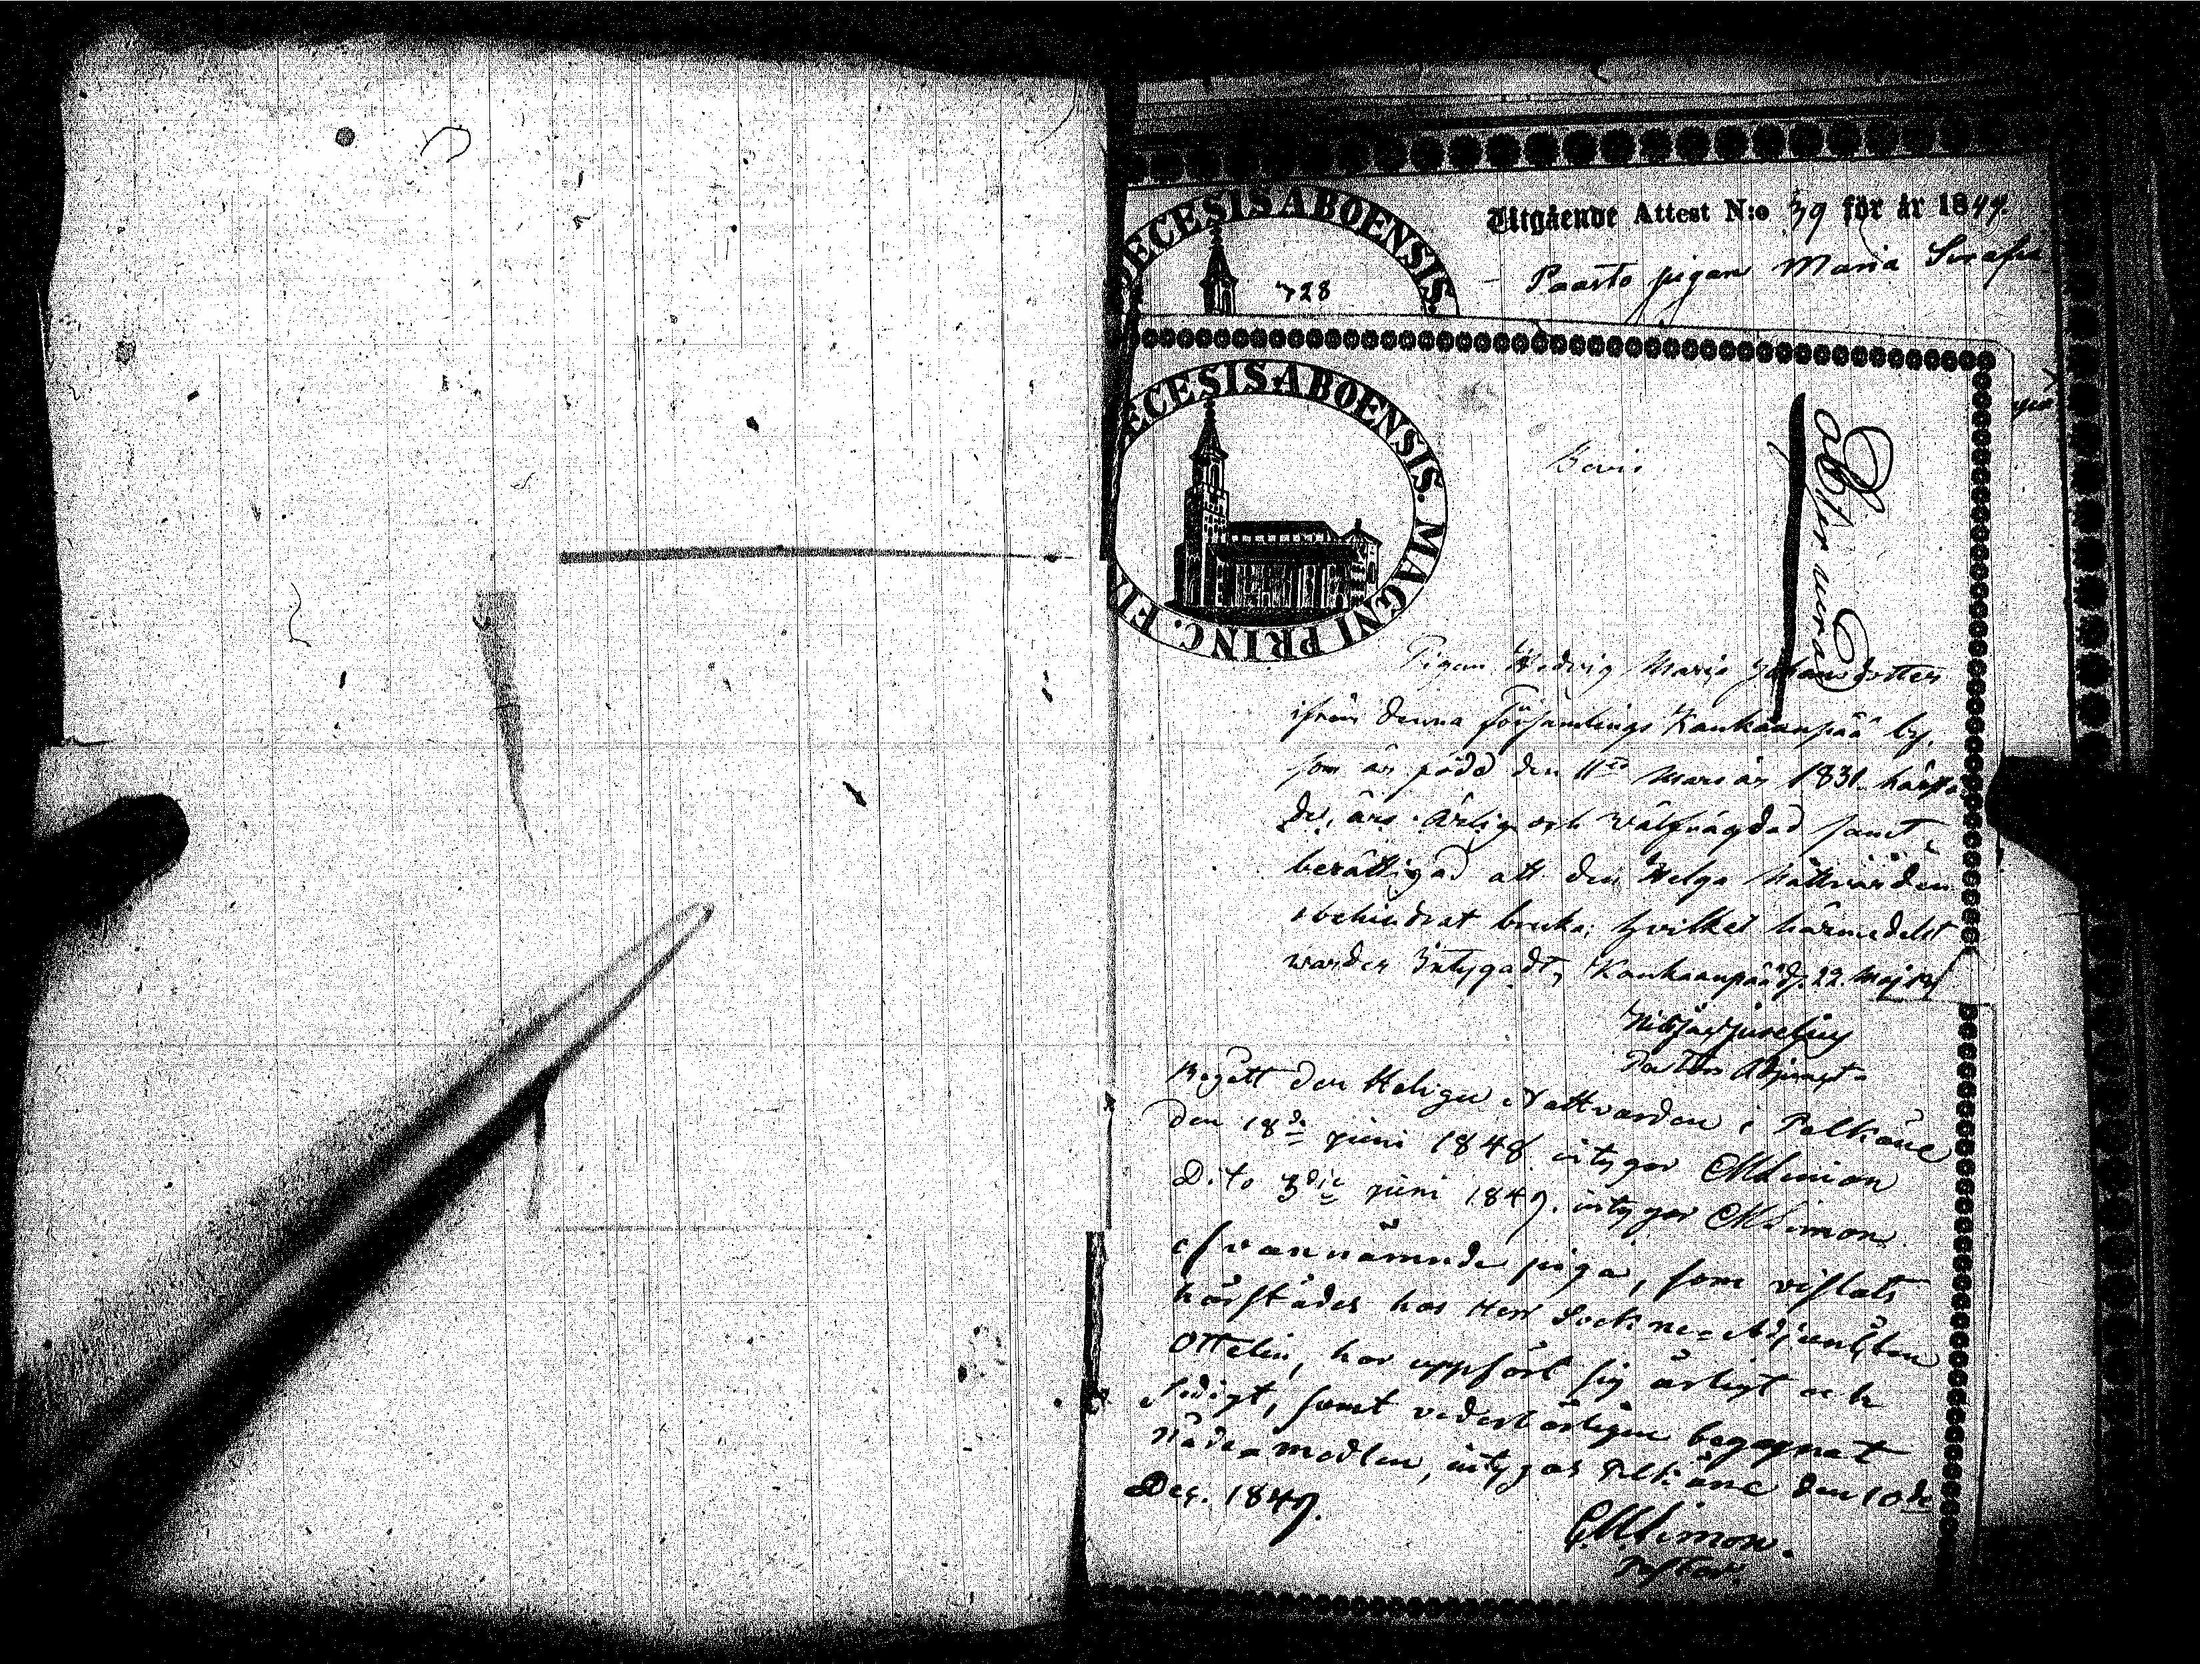 DECESIS ABOENSIS.
728
Utgående Attest N:o 39 för år 1849.
Paasto pigan Maria Serafia
ECESIS ABOENSIS. MAGNI PRINC. FI
Bevis
Pigan Hedvig Maria Johansdotter
ifrån denna församlings Kankaanpää by,
som är född den 11te Mars år 1831. härstä
des, är ärlig och välfrägdad samt
berättigad att den Helga Nattvarden
obehindrat bruka; hvilket härmedelst
warder intygadt, Kankaanpää d. 22. Maj
Pastors Adjunct.
Begått den Heliga Nattvarden i Pelkäne
den 18de juni 1848. intygar CMLimon
Dito 3die juni 1849. intygar CMLimon.
Ofvannämnde piga, som vistats
härstädes hos Herr Sockne-Adjunkten
Ottelin, har uppfört sig ärligt och
sedigt, samt vederbörligen begagnat
nådemedlen, intygas Pelkäne den 10de
Dec. 1849.
CMLimon.
Pastor.